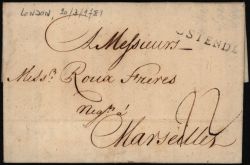 LONDON, 20/3/1781
OSTENDE
A Messieurs
Mess.rs Roux Freres
Neg.ts à
Marseilles